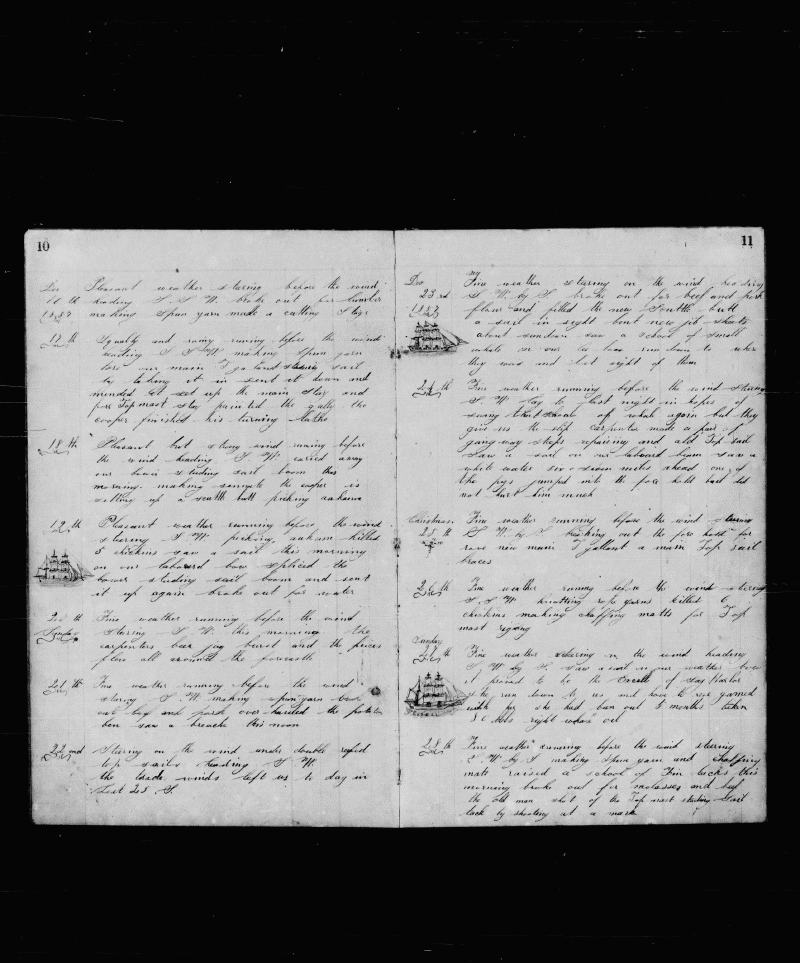 10
Dec Pleasant weather staring before the wind
16 th heading S. S. W. broke out for lumber
making spun yarn made a cutting stage
17 th Squally and rainy running before the wind
heading S S W making spun yarn
tore our main T gallant studding sail
by taking it in sent it down and
mended it set up the main stay and
fore Top mast stay painted the gally the
cooper finished his turning lathe
18 th Pleasant but strong wind running before
the wind heading S W carried away
our lower studing sail boom this
morning making the cooper is
setting up a scuttle butt picking
19 th Pleasant weather running before the wind
staring S W picking killed
5 chickens saw a sail this morning
on our labourd bow spliced the
lower studing sail boom and sent
it up again broke out for water
20 th Fine weather running before the wind
Sunday staring S W this morning the
carpenters beer jug burst and the pieces
flew all around the forecastle
21 th Fine weather running before the wind
staring S W making spun yarn broke
out beef and pork over-hauled the potatoe
ben saw a breache this noon
22 ond Staring on the wind under double reefed
top sails heading S W
the trade winds left us to day in
Lat 25 S.
11
Dec Fine weather staring on the wind heading
23 rd S W. by S broke out for beef and pork
flour and filled the new Scuttle butt
a sail in sight bent new jib sheets
about sundown saw a school of small
whale on our lee beam run down to where
they was and lost sight of them
24 th Fine weather running before the wind staring
S. W. lay to last night in hopes of
seeing that shoal of whale again but they
give us the slip carpenter made a pair of
gangway steps repairing and old Top sail
saw a sail on our labourd beam saw a
white water six or seven miles ahead one of
the pigs jumped into the fore hold but did
not hurt him much
Christmas Fine weather running before the wind staring
25 th S W. by S breaking out the fore hold for
rove new main T gallant a main Top sail
braces
26 th Fine weather running before the wind steering
S. S W knotting rope yarns killed 6
chickens making chaffing matts for Top
mast riging
Sunday
27 th Fine weather steering on the wind heading
S W by S. saw a sail on our weather bow
it proved to be the of Sag Harbor
she run down to us and hove to we gamed
with her she had ben out 5 months taken
80 bbls right whale oil
28 th Fine weather running before the wind steering
S W by S making spun yarn and chaffing
matts raised a school of Fin backs this
morning broke out for molasses and beef
the old man shot of the Top mast studing Sail
tack by shooting at a mark